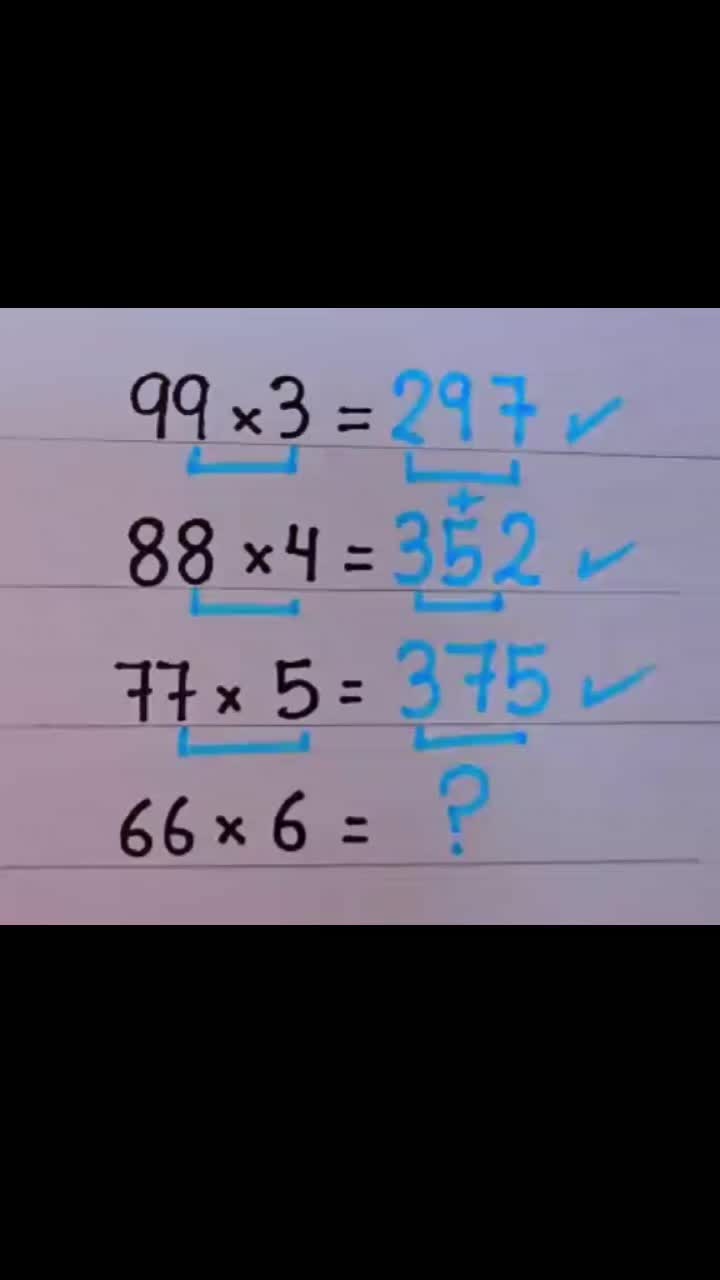 99 × 3 = 297 ✓
+
88 × 4 = 352 ✓
77 × 5 = 375 ✓
66 × 6 = ?